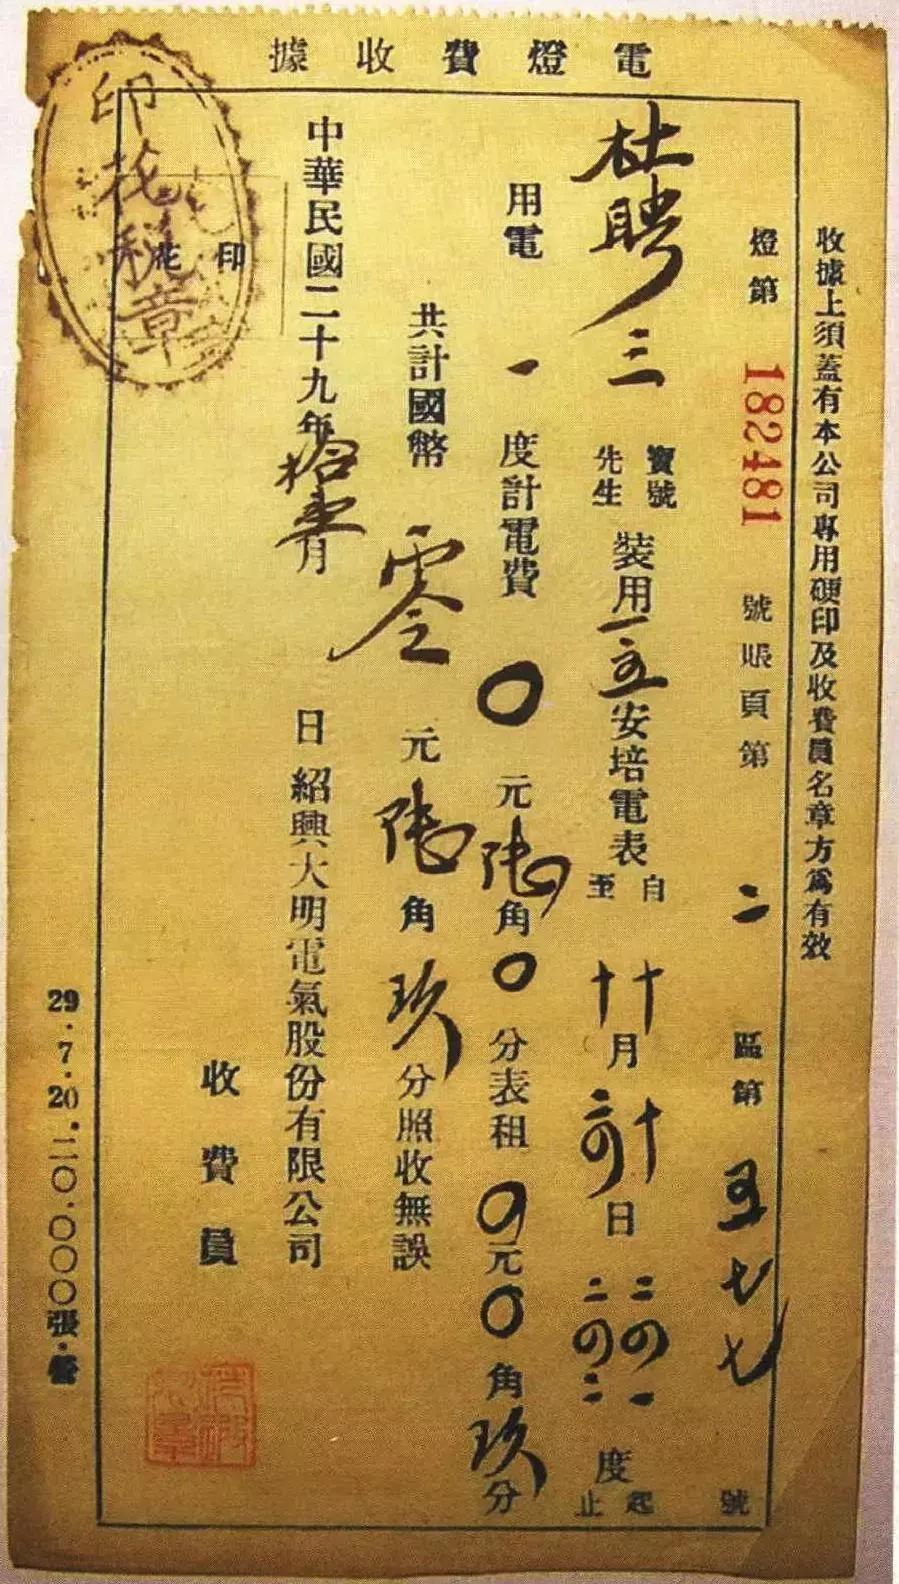 電燈費收據
收據上須蓋有本公司專用硬印及收費員名章方為有效
燈第 182481 號賬頁第 二 區第 五七七 號
杜聘三 寶號先生 裝用一五安培電表 自十月十日二四一度起 至十月二〇日二四二度止
用電 一 度計電費 〇元陸角〇分表租〇元〇角玖分
共計國幣 零元陸角玖分照收無誤
中華民國二十九年拾壹月 日 紹興大明電氣股份有限公司
收費員
印花
印花稅章
29.7.20.二〇.〇〇〇張.